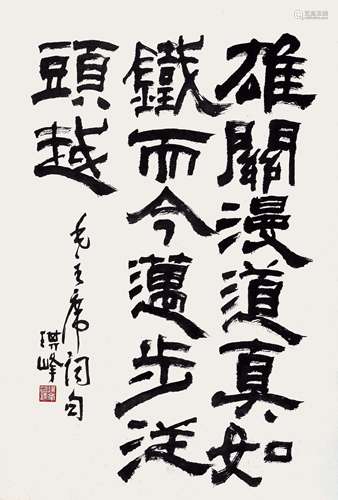 雄關漫道真如
鐵而今邁步從
頭越
毛主席詞句
琪峰